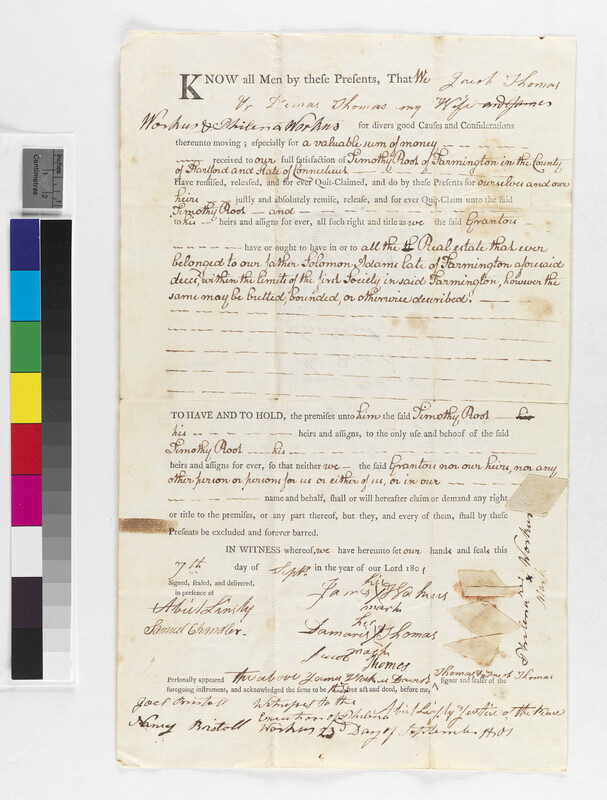 KNOW all Men by these Presents, That We Jacob Thomas
& Damas Thomas my Wife and James
Workus & Philena Workus for divers good Causes and Considerations
thereunto moving; especially for a valuable sum of money
received to our full satisfaction of Timothy Root of Farmington in the County
of Hartford and State of Connecticut
Have remised, released, and for ever Quit-Claimed, and do by these Presents for ourselves and our
heirs justly and absolutely remise, release, and for ever Quit-Claim unto the said
Timothy Root and
to his heirs and assigns for ever, all such right and title as we the said Grantors
have or ought to have in or to all the Real estate that ever
belonged to our father Solomon Adams late of Farmington aforesaid
decd, within the limits of the first Society in said Farmington, however the
same may be butted, bounded, or otherwise described.
TO HAVE AND TO HOLD, the premises unto him the said Timothy Root his
his heirs and assigns, to the only use and behoof of the said
Timothy Root his
heirs and assigns for ever, so that neither we the said Grantors nor our heirs, nor any
other person or persons for us or either of us, or in our
name and behalf, shall or will hereafter claim or demand any right
or title to the premises, or any part thereof, but they, and every of them, shall by these
Presents be excluded and forever barred.
IN WITNESS whereof, we have hereunto set our hands and seals this
7th day of Septr. in the year of our Lord 1801
Signed, sealed, and delivered,
in presence of
Samuel Chandler
James his Workus
mark
Damaris his Thomas
mark
Jacob Thomas
Philena his X Workus
Mark
Personally appeared the above James Workus Damaris Thomas & Jacob Thomas signer and sealer of the
foregoing instrument, and acknowledged the same to be their free act and deed, before me,
Justice of the Peace
Joel Bristoll Witnesses to the
Nancy Bristoll Execution of Philena
Workus 23d Day of September 1801
Centimetres
Inches